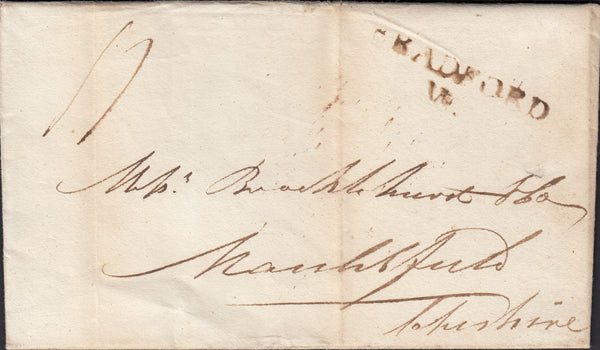 11
BRADFORD
W.
Messrs. Brocklehurst & Co
Macclesfield
Cheshire